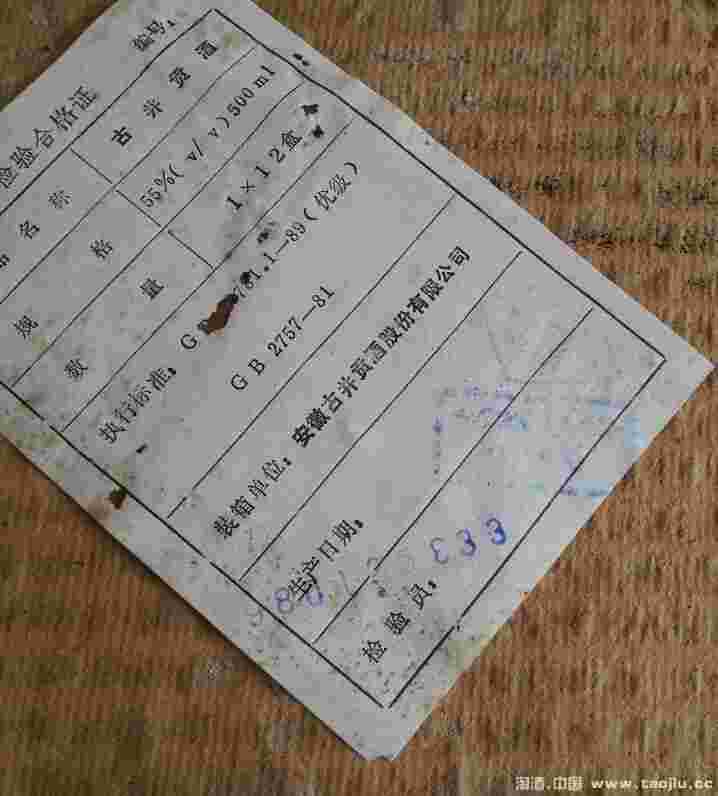 检验合格证
编号:
品名称 古井贡酒
规格 55%(v/v)500ml
数量 1×12盒
执行标准: GB 781.1—89(优级)
GB 2757—81
装箱单位: 安徽古井贡酒股份有限公司
生产日期:
检验员: 333
淘酒.中国 www.taojiu.cc